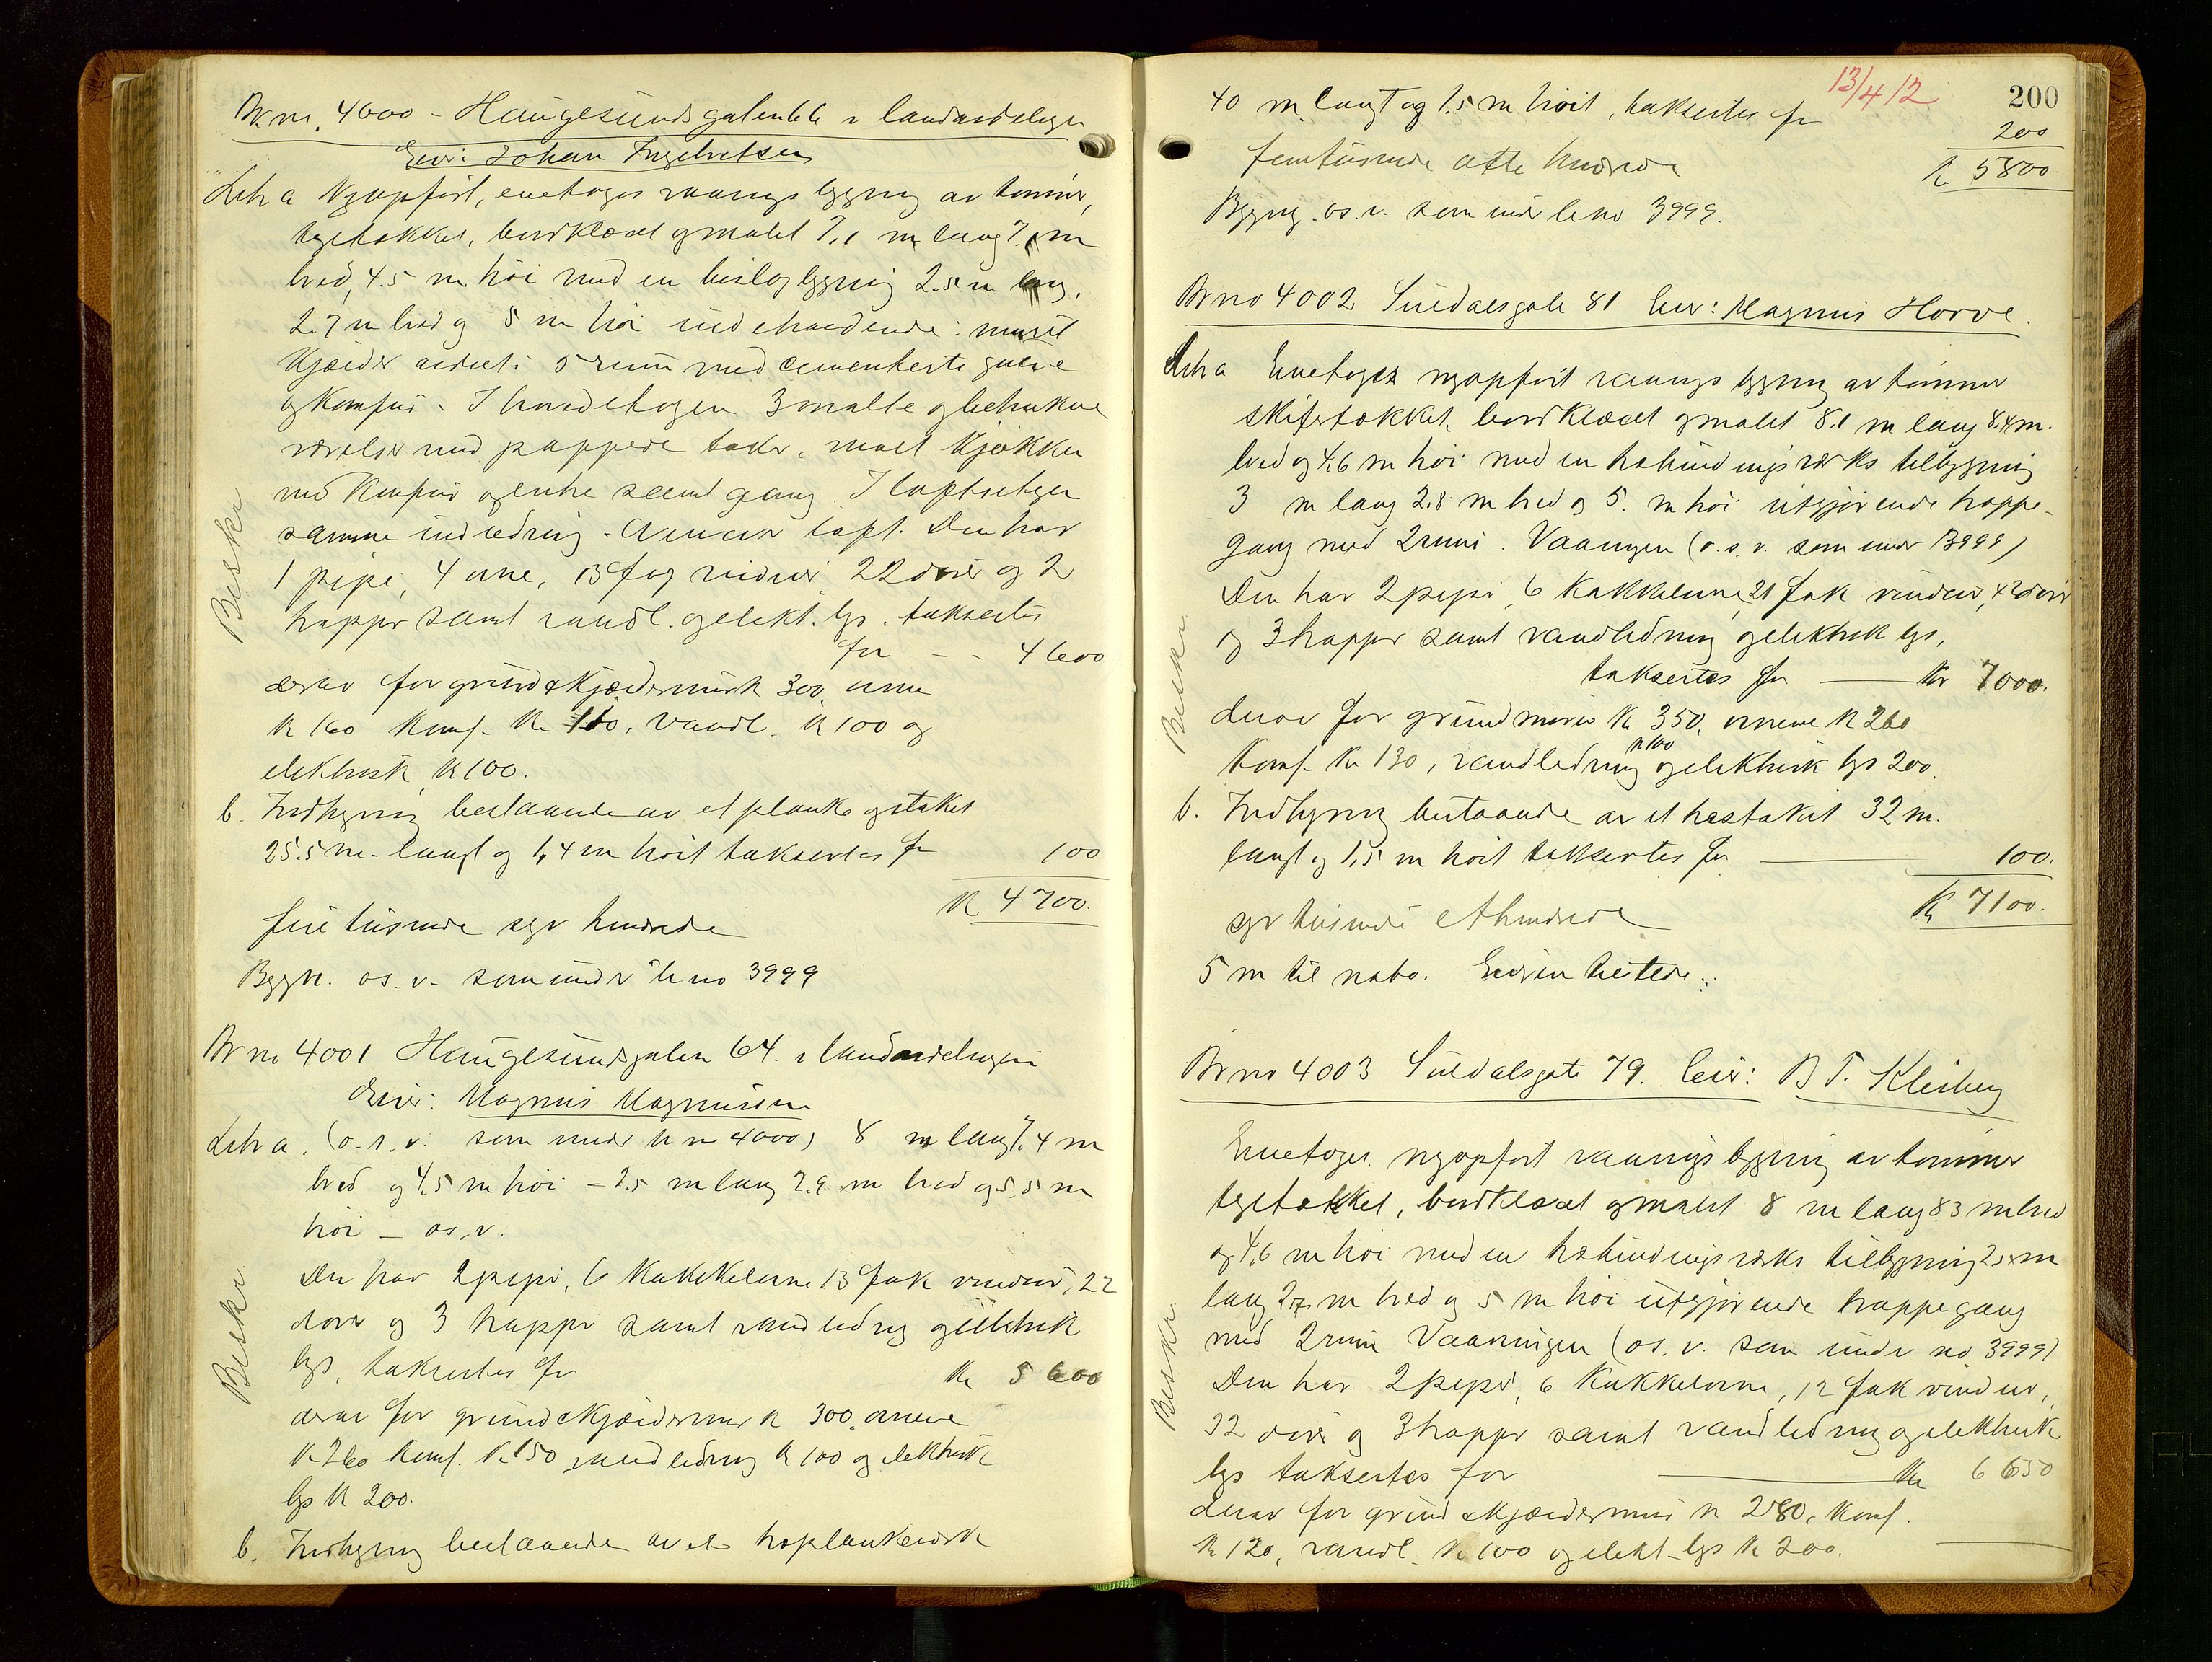 Br no. 4000 - Haugesundsgaten 66 i landavdelingen
Eier: Johan Ingebretsen
Litr a Nyopført, enetages vaaningsbygning av tømmer,
tegltækket, bordklædt og malet 7,1 m lang 7,1 m
bred, 4.5 m høi med en bislagbygning 2.5 m lang,
2.7 m bred og 5 m høi indeholdende: muret
Kjælder avdelt i 5 rum med cementerte gulve
og Komfur. I hovedetagen 3 malte og betrukne
værelser med pappede taker, malt Kjøkken
med Komfur og entre samt gang. I loftsetagen
samme indredning. Annex loft. Den har
1 pipe, 4 ovne, 13 fag vinduer 22 dører og 2
trapper samt vandl. og elekt. lys. takseres
for - - 4600
derav for grund & Kjældermur K 300, ovne
K 160 Komf. Kr 110, vandl. K 100 og
elektrisk K 100.
b. Indhegning bestaaende av et planke og stakit
25.5 m. langt og 1,4 m høit taksertes for 100
K 4700.
fire tusinde syv hundrede
Bygn. os.v. som under br no 3999
Br no 4001 Haugesundsgaten 64. i landavdelingen
Eier: Magnus Magnussen
Litr a. (o.s.v. som under br no 4000) 8 m lang 7,4 m
bred og 4,5 m høi - 2.5 m lang 2.9 m bred og 5,5 m
høi - os.v.
Den har 2 piper, 6 Kakkelovne 13 fak vinduer, 22
dører og 3 trapper samt vandledning og elektrisk
lys, taksertes for Kr 5600
derav for grund & Kjældermur K 300, ovnene
K 260 Komf. K 150, vandledning K 100 og elektrisk
lys K 200.
b. Indhegning bestaaende av et
Beskr
Beskr
13/4 12
200
40 m langt og 1.5 m høit, taksertes for
200
femtusinde otte hundrede K 5800
Bygng. os.v. som under br no 3999.
Br no 4002 Suldalsgate 81 Eier: Magnus Horve.
Litr a Enetages nyopført vaaningsbygning av tømmer
skifertækket, bordklædt og malet 8.1 m lang 8,4 m.
bred og 4,6 m høi med en utbindingsværks tilbygning
3 m lang 2.8 m bred og 5. m høi utgjørende trappe-
gang med 2 rum. Vaaningen (o.s.v. som under 3999)
Den har 2 piper, 6 Kakkelovne 21 fak vinduer, 42 dører
og 3 trapper samt vandledning og elektrisk lys,
taksertes for Kr 7000.
derav for grundmuren K 350, ovnene K 260
Komf. Kr 130, vandledning K 100 og elektrisk lys 200.
b. Indhegning bestaaende av et træstakit 32 m.
langt og 1,5 m høit taksertes for 100.
K 7100.
syv tusinde et hundrede
5 m til nabo. Eieren tilstede.
Br no 4003 Suldalsgate 79. Eier: B T. Kleiberg
Enetages nyopført vaaningsbygning av tømmer
tegltækket, bordklædt og malet 8 m lang 8.3 m bred
og 4,6 m høi med en utbindingsværks tilbygning 2.5 m
lang 2.7 m bred og 5 m høi utgjørende trappegang
med 2 rum Vaaningen (os.v. som under no 3999)
Den har 2 piper, 6 Kakkelovne, 12 fak vinduer,
32 dører og 3 trapper samt vandledning og elektrisk
lys taksertes for Kr 6650
derav for grund & kjældermur K 280, Komf.
K 120, vandl. K 100 og elekt. lys K 200.
Beskr
Beskr.